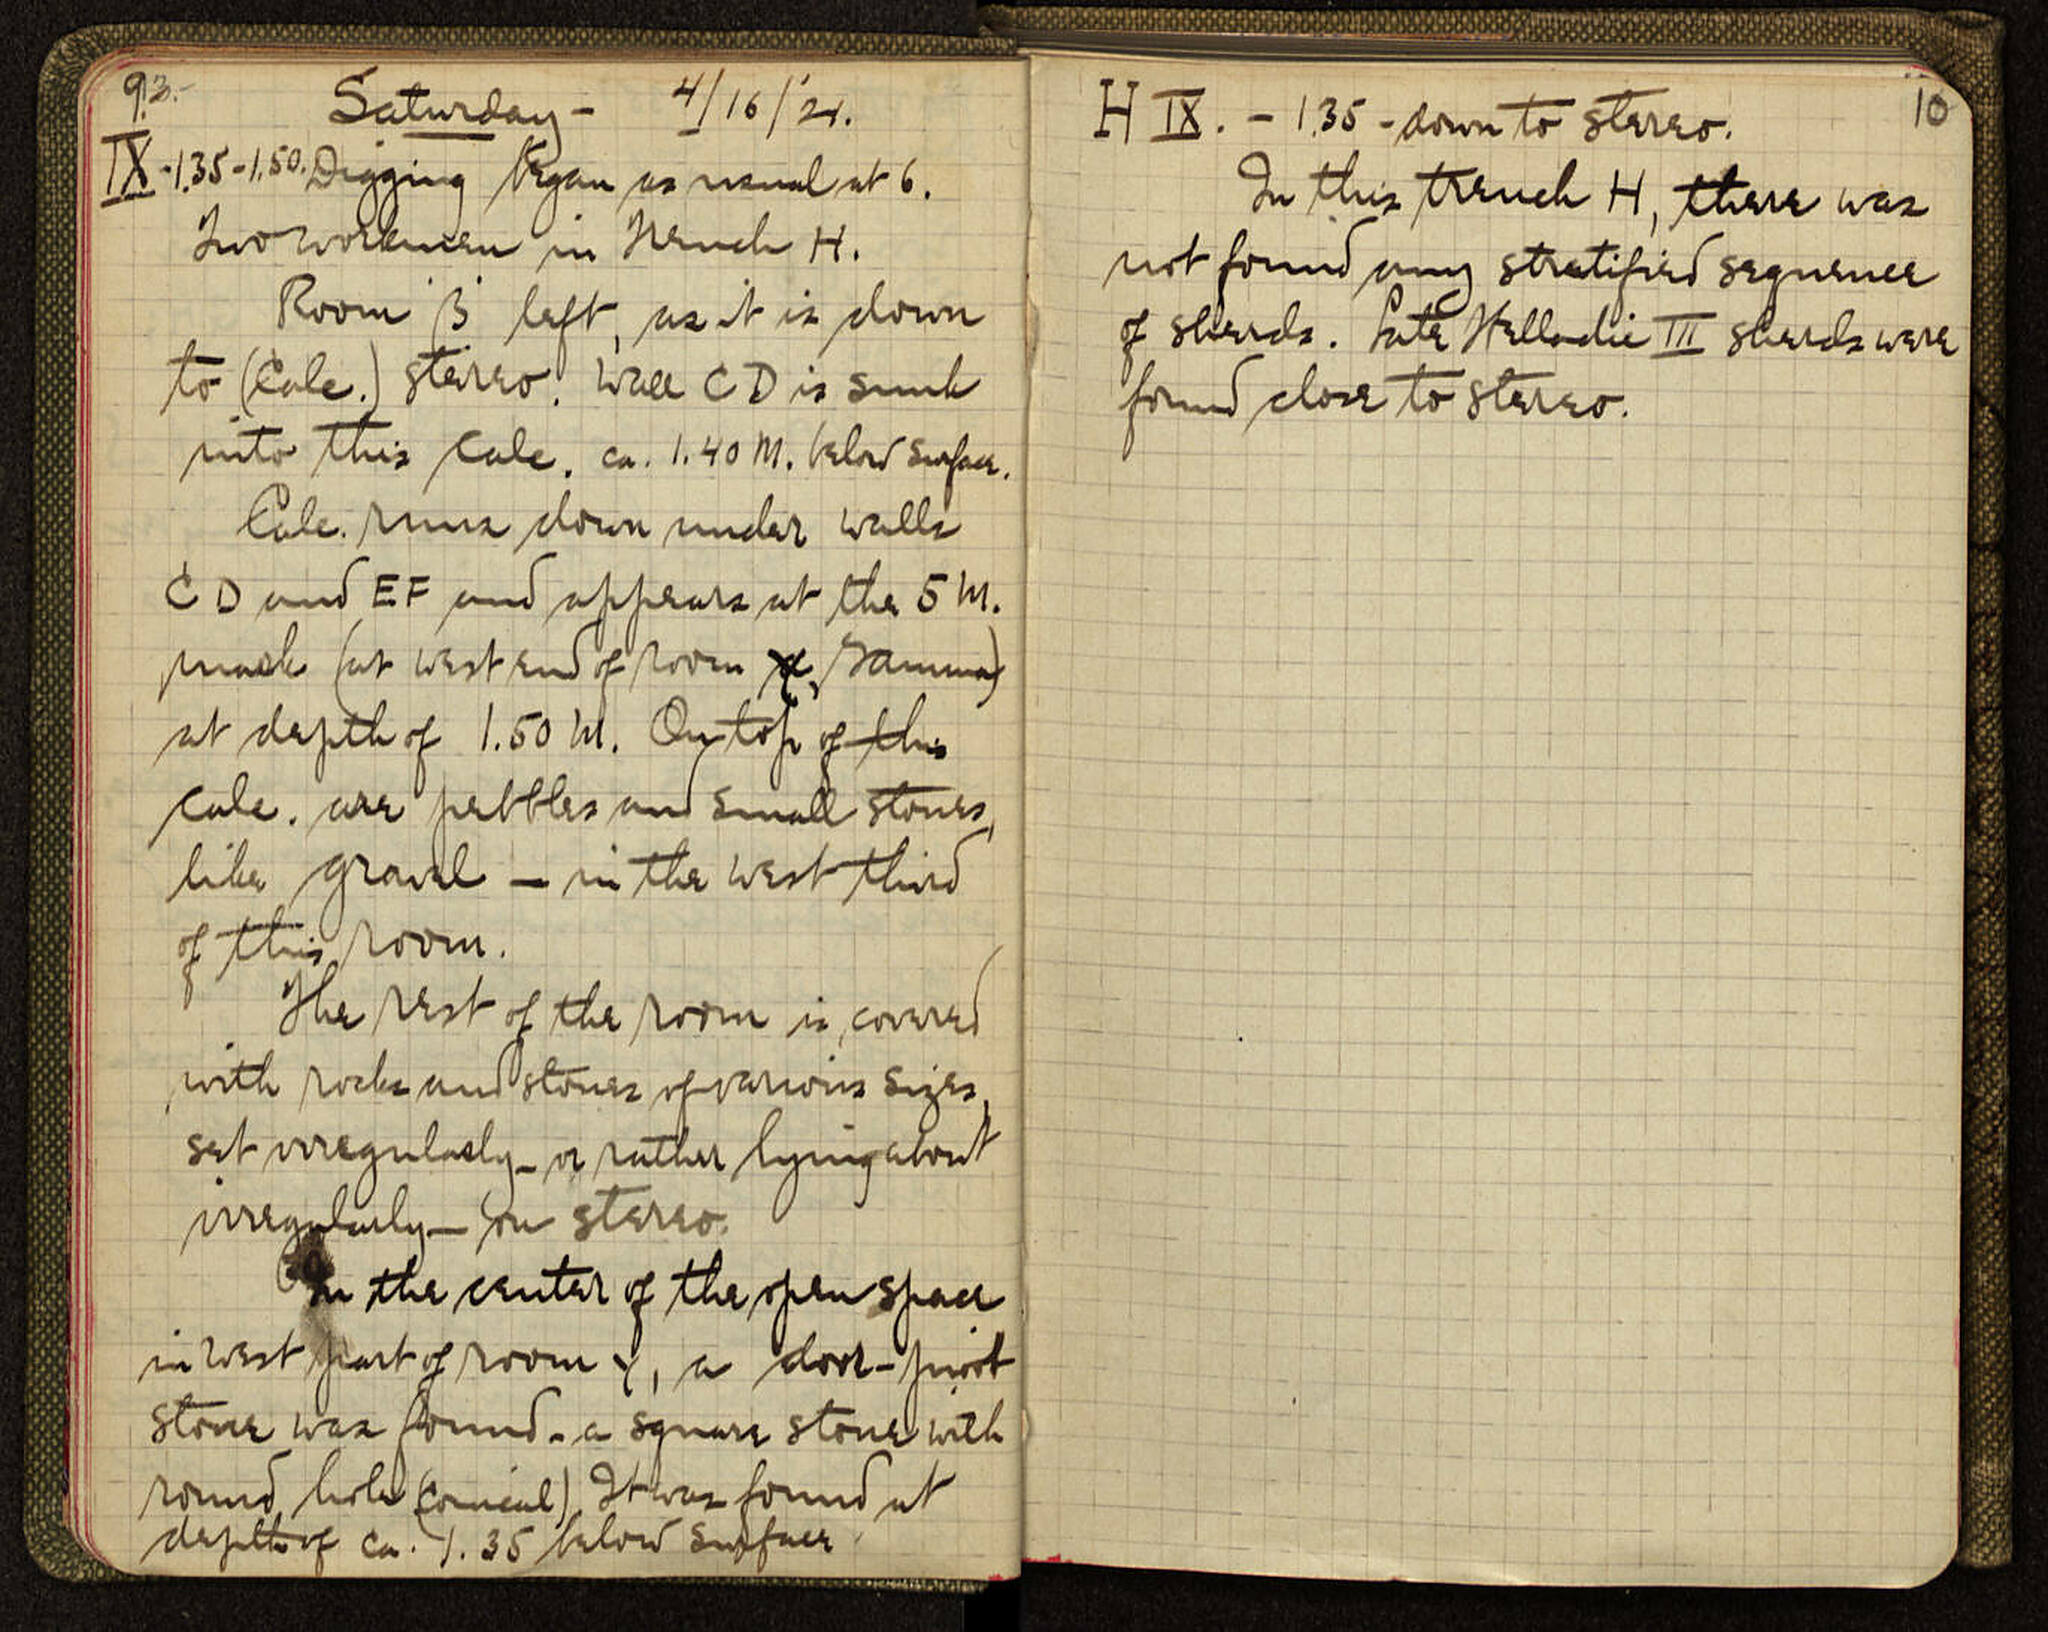 93.
Saturday - 4/16/'21.
IX -1.35-1.50. Digging began as usual at 6.
Two workmen in Trench H.
Room β left, as it is down
to (Calc.) stereo. Wall CD is sunk
into this calc. ca. 1.40 M. below surface.
Calc. runs down under walls
CD and EF and appears at the 5 M.
mark (at west end of room γ, Gamma)
at depth of 1.50 M. On top of this
calc. are pebbles and small stones,
like gravel — in the west third
of this room.
The rest of the room is covered
with rocks and stones of various sizes,
set irregularly - or rather lying about
irregularly — on stereo.
In the center of the open space
in west part of room γ, a door-pivot
stone was found - a square stone with
round hole (conical). It was found at
depth of ca. 1.35 below surface.
10
H IX. - 1.35 - down to stereo.
In this trench H, there was
not found any stratified sequence
of sherds. Late Helladic III sherds were
found close to stereo.